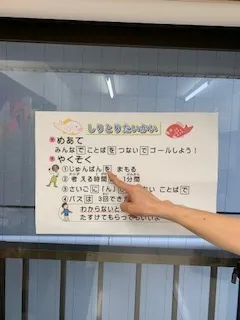 しりとりたいかい
めあて
みんなでことばをつないでゴールしよう！
やくそく
①じゅんばんを まもる
②考える時間 1分間
③さいごに「ん」 ない ことばで
④パスは 3回でき
わからないと
たすけてもらっても いいよ